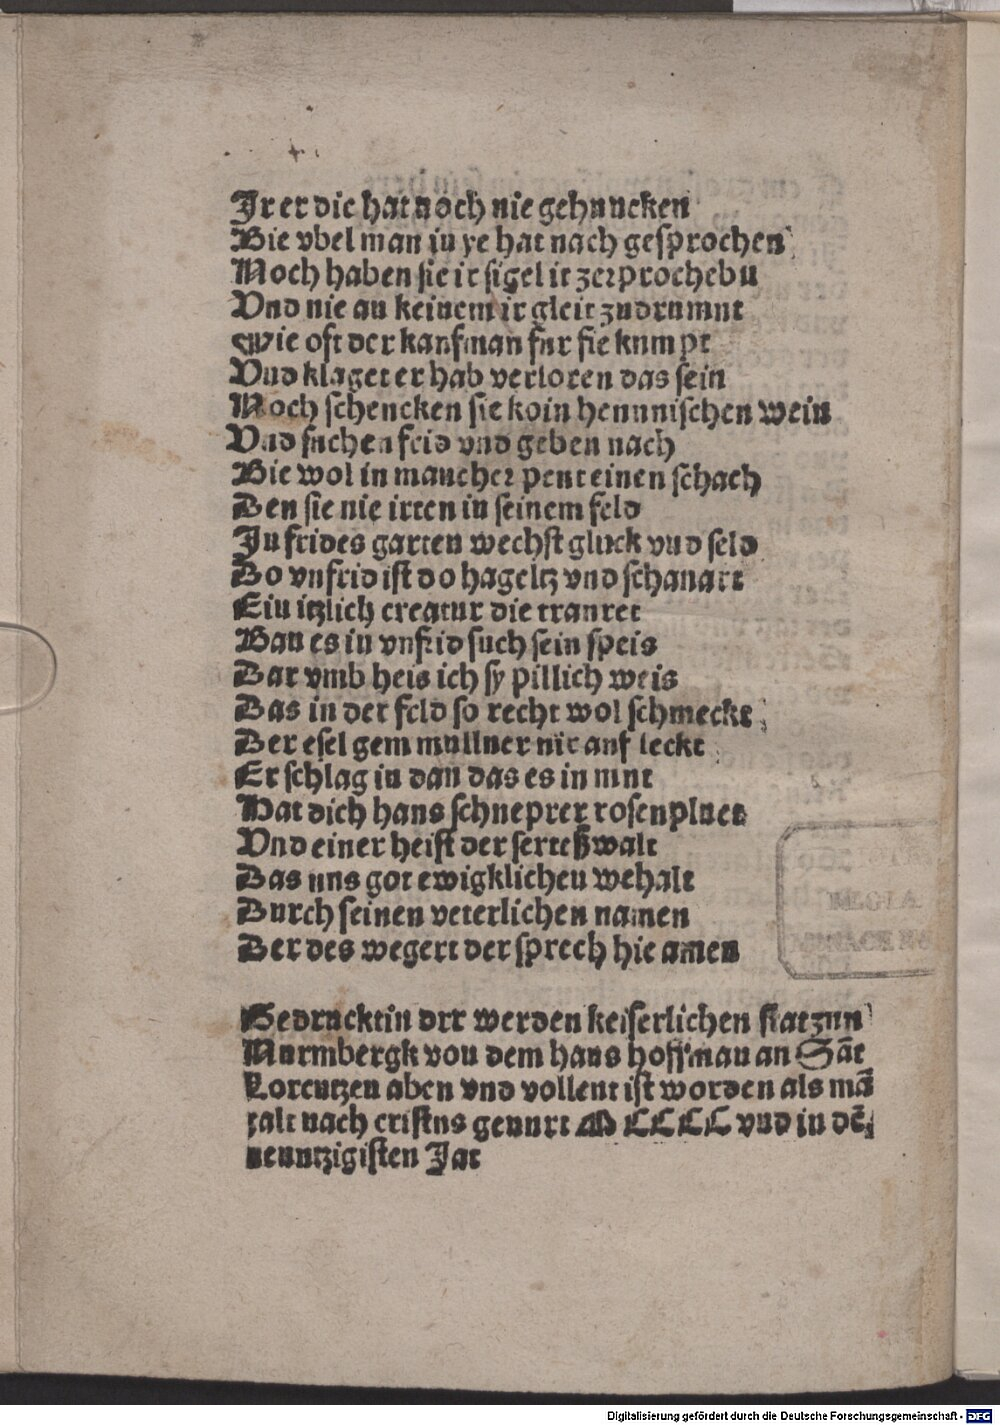 Jr er die hat noch nie gehuncken
Wie vbel man in ye hat nach gesprochen
Noch haben sie ir sigel it zerprochehu
Vnd nie an keinem ir gleit zudrumnt
wie oft der kaufman fur sie kumpt
Vnd klaget er hab verloren das sein
Noch schencken sie koin hennnischen wein
Vnd suchen frid vnd geben nach
Wie wol in mancher peut einen schach
Den sie nie irten in seinem feld
In frides garten wechst gluck vnd seld
Do vnfrid ist do hageltz vnd schanart
Ein itzlich creatur die tranret
Wan es in vnfrid such sein speis
Dar vmb heis ich sy pillich weis
Das in der feld so recht wol schmeckt
Der esel gem mullner nit auf leckt
Er schlag in dan das es in mnt
Hat dich hans schneprer rosenpluet
Vnd einer heist der serteßwalt
Das uns got ewigklichen wehalt
Durch seinen veterlichen namen
Der des wegert der sprech hie amen
Gedrucktin drr werden keiserlichen statzun
Nurmbergk von dem hans hoffman an Sāt
Lorentzen aben vnd vollent ist worden als mā
zalt nach cristns gevurt M CCCC vnd in dē
neuntzigisten Jar
REGIA
MONACENSIS
Digitalisierung gefördert durch die Deutsche Forschungsgemeinschaft - DFG